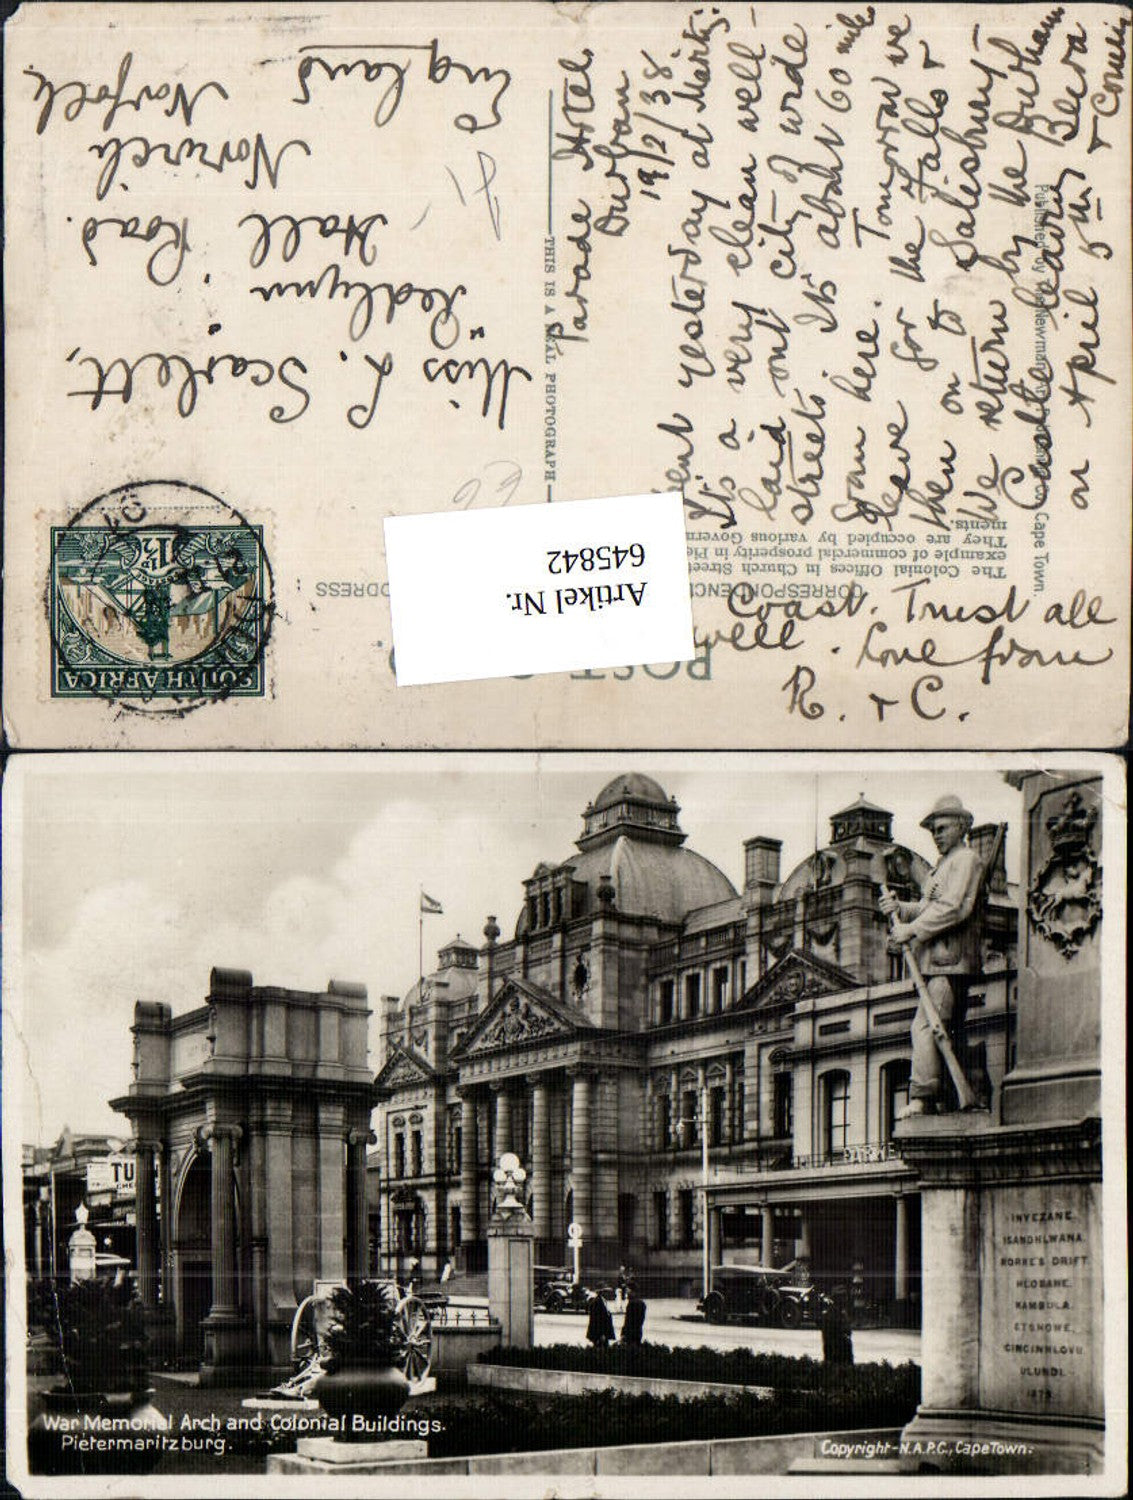 Parade Hotel
Durban
19/2/38
ent yesterday at Maritzg.
It's a very clean well-
laid out city of wide
streets. It's about 60 miles
from here. Tomorrow we
leave for the Falls &
then on to Salisbury -
We return by the Durham
Castle leaving Beira
on April 5th & Comin
Coast. Trust all
well. Love from
R. & C.
Miss L. Scarlett,
"Redlynn"
Hall Road.
Norwich
Norfolk.
England
THIS IS A REAL PHOTOGRAPH
Published by The Newman Art Cape Town.
The Colonial Offices in Church Street
example of commercial prosperity in Pie
They are occupied by various Govern
ments.
CORRESPONDENC
DDRESS :
POST
SOUTH AFRICA
1½D
Artikel Nr.
645842
TU
INYEZANE.
ISANDHLWANA.
RORKE'S DRIFT.
HLOBANE.
KAMBULA.
ETSHOWE.
GINGINHLOVU.
ULUNDI.
1879.
War Memorial Arch and Colonial Buildings.
Pietermaritzburg.
Copyright-N.A.P.C., CapeTown.